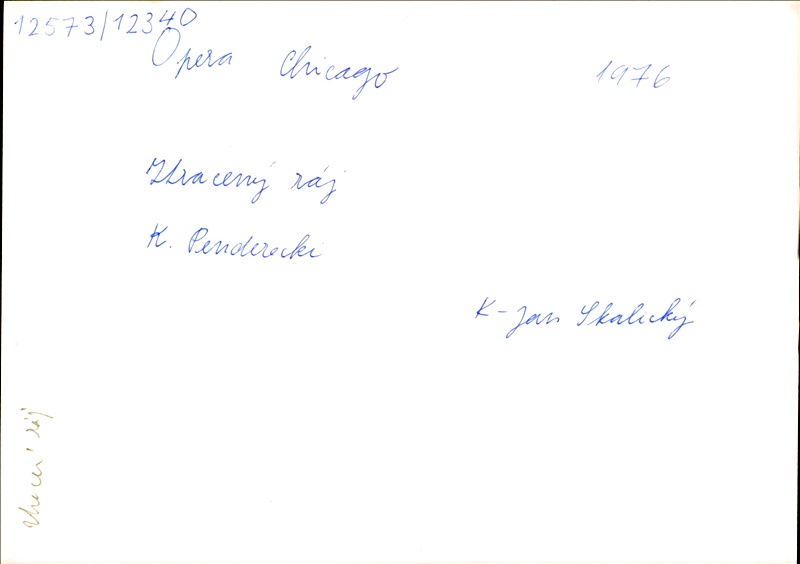 12573/12340
Opera Chicago 1976
Ztracený ráj
K. Penderecki
K - Jan Skalický
ráj